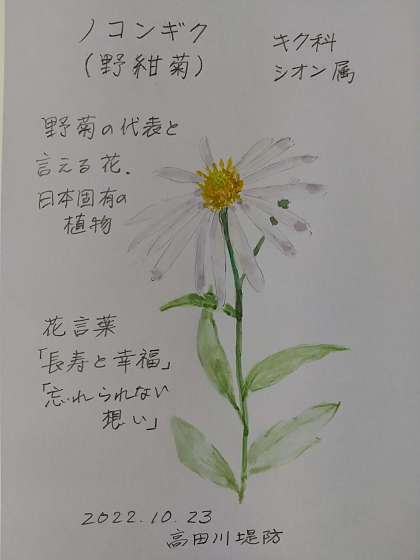 ノコンギク
(野紺菊)
キク科
シオン属
野菊の代表と
言える花.
日本固有の
植物
花言葉
「長寿と幸福」
「忘れられない
想い」
2022.10.23
高田川堤防